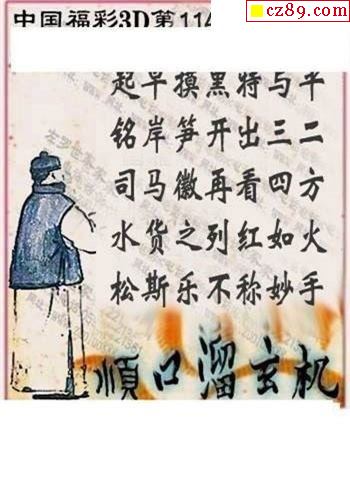 中国福彩3D第114
cz89.com
起早摸黑特与平
铭岸笋开出三二
司马徽再看四方
水货之列红如火
松斯乐不称妙手
顺口溜玄机